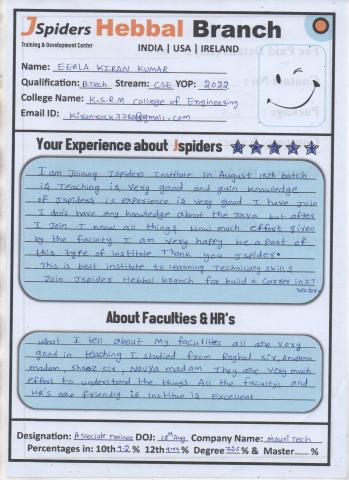 JSpiders Hebbal Branch
Training & Development Center
INDIA | USA | IRELAND
Name: EERLA KIRAN KUMAR
Qualification: BTech Stream: CSE YOP: 2022
College Name: K.S.R.M college of Engineering
Email ID: Kiranrock7730@gmail.com
Your Experience about Jspiders
I am Joining Jspiders Institute in August 18th batch
is Teaching is very good and gain knowledge
of Jspiders is experience is very good I have Join
I don't have any knowledge about the Java but after
I Join I know all things How much effort given
by the faculty I am very happy be a past of
this type of institute Thank you Jspider.
This is best institute to learning Technically skills
Join Jspider Hebbal branch for build a Career in IT
sector
About Faculties & HR's
what I tell about My faculities all are very
good in teaching I studied from Raghul sir, Anupama
madam, sir, Navya madam They are very much
effort to understand the things All the faculty's and
HR's are friendly is Institue is Excellent
Designation: Associate Trainee DOJ: 18th Aug Company Name: Mouri Tech
Percentages in: 10th 9.2 % 12th % Degree 72.5 % & Master %